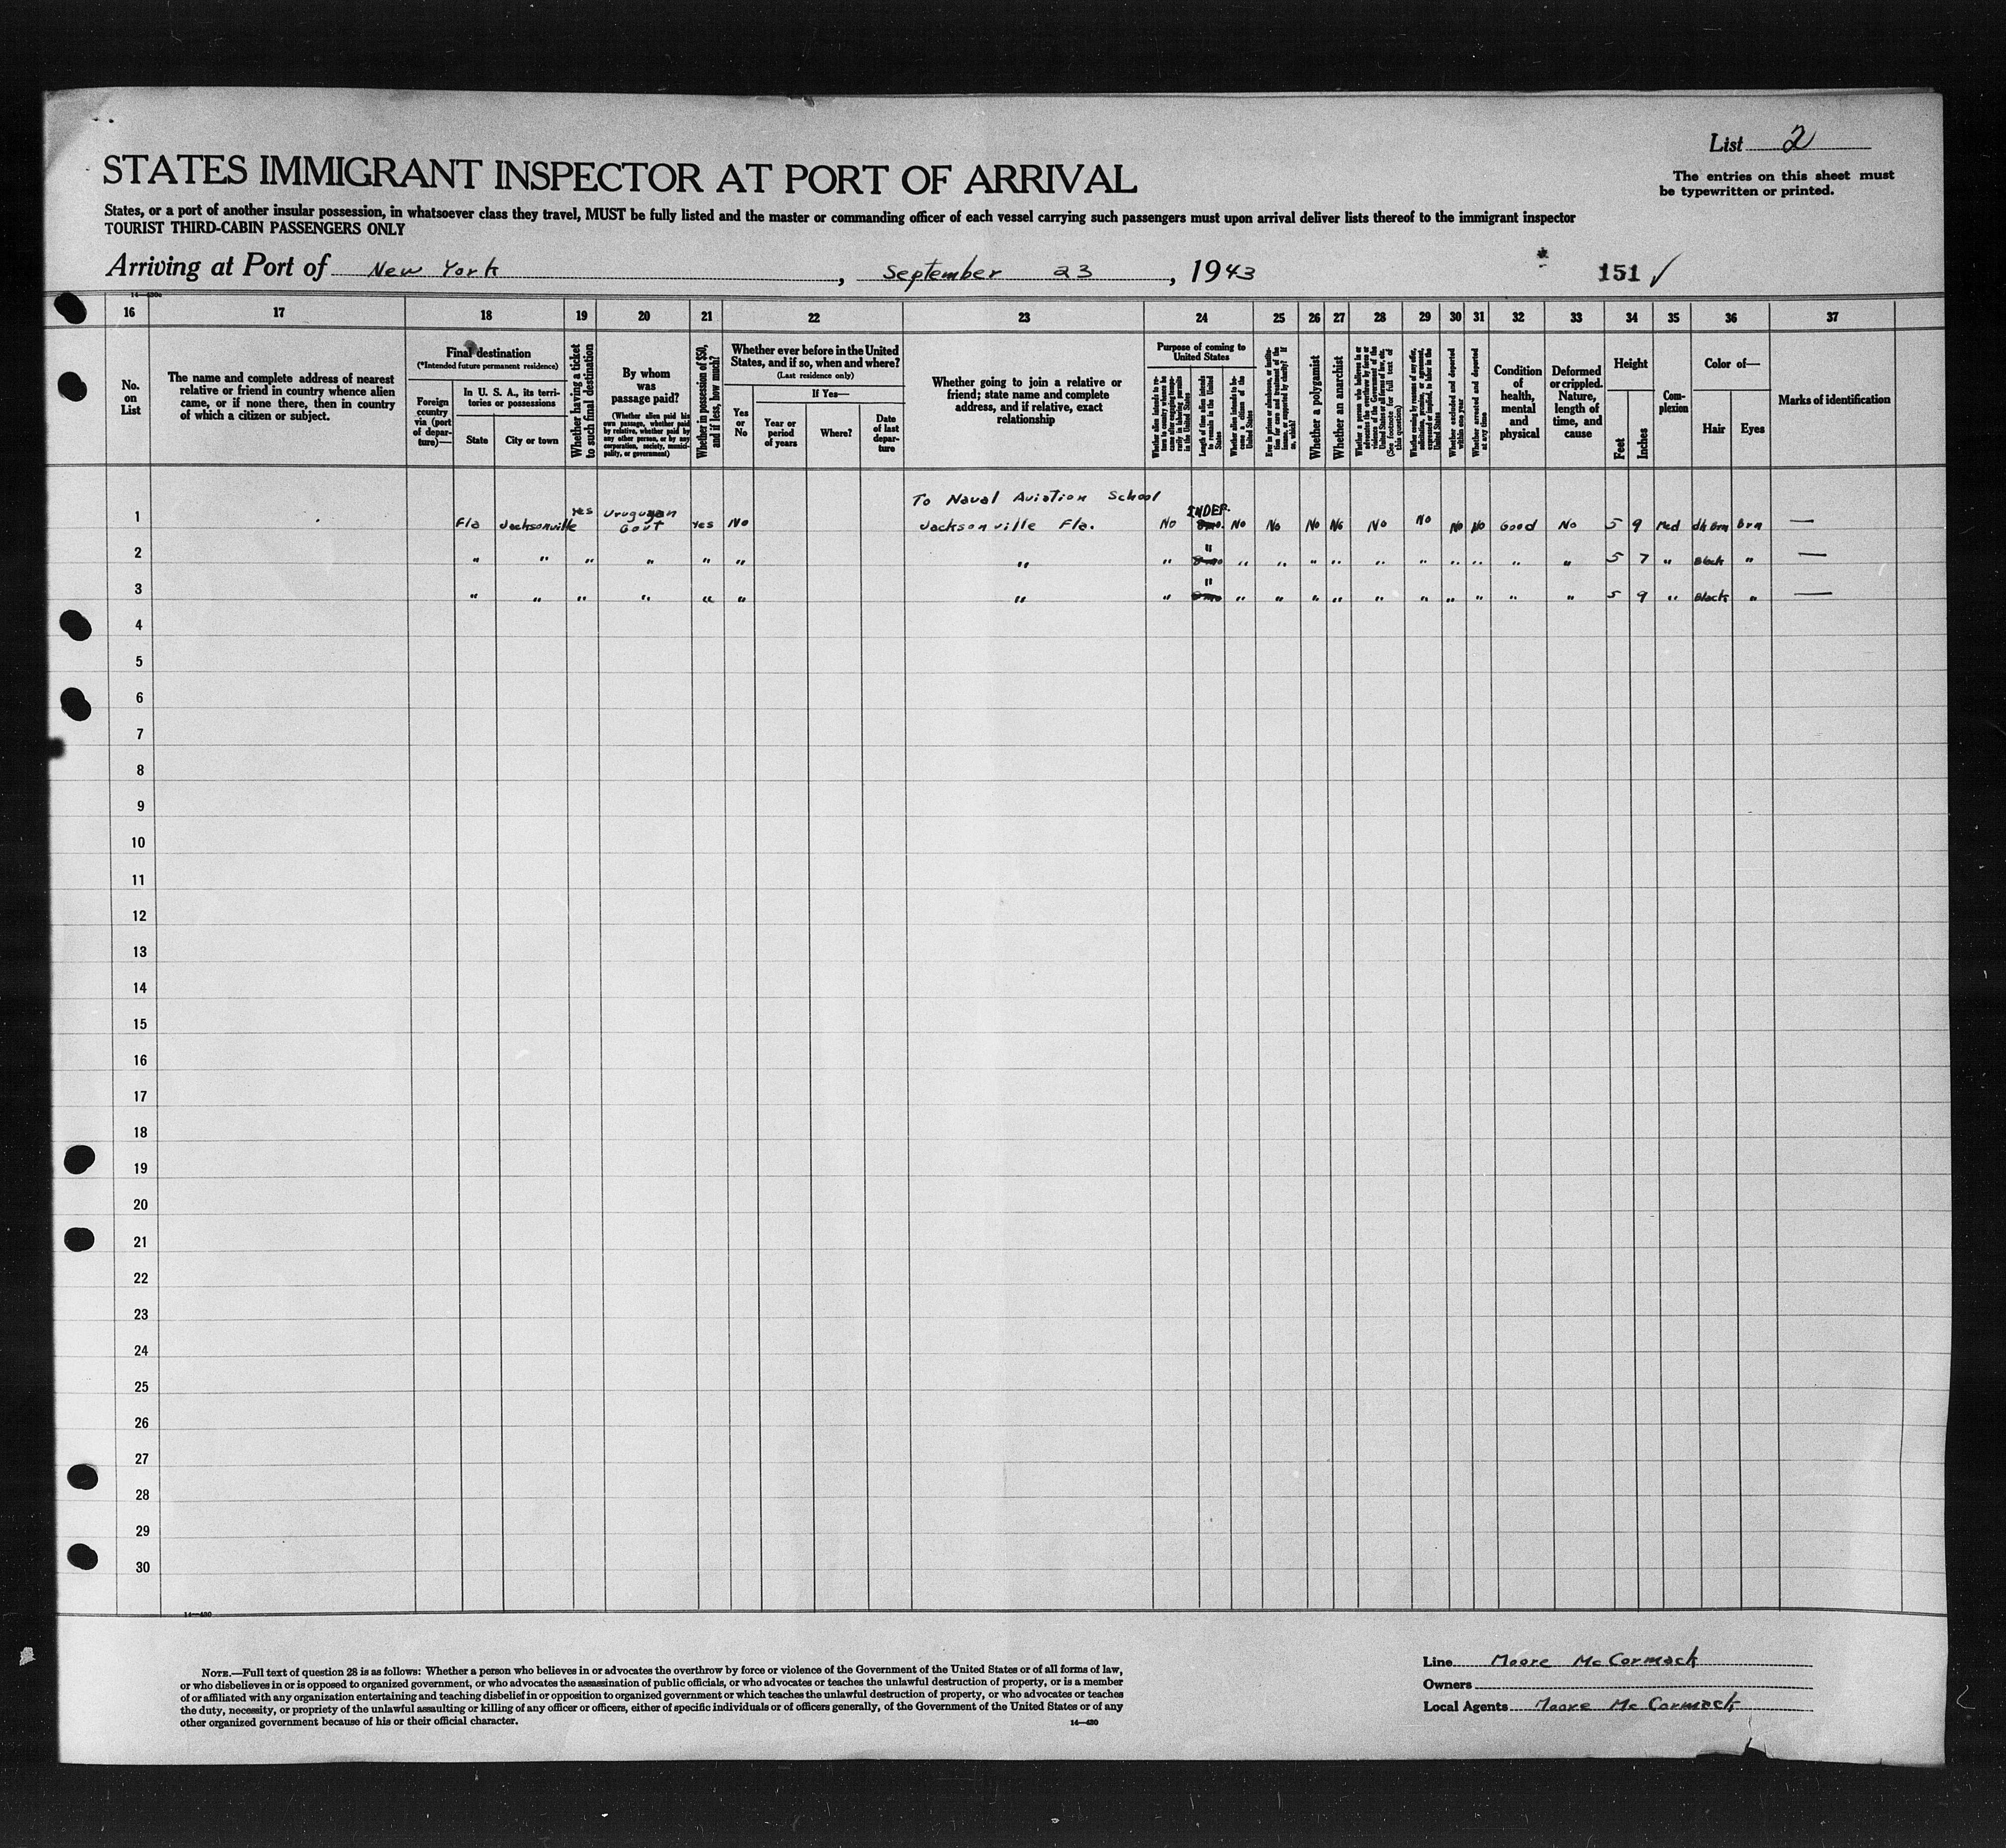 List 2
STATES IMMIGRANT INSPECTOR AT PORT OF ARRIVAL
The entries on this sheet must
be typewritten or printed.
States, or a port of another insular possession, in whatsoever class they travel, MUST be fully listed and the master or commanding officer of each vessel carrying such passengers must upon arrival deliver lists thereof to the immigrant inspector
TOURIST THIRD-CABIN PASSENGERS ONLY
Arriving at Port of New York, September 23, 1943
151 ✓
16 17 18 19 20 21 22 23 24 25 26 27 28 29 30 31 32 33 34 35 36 37
No.
on
List
The name and complete address of nearest
relative or friend in country whence alien
came, or if none there, then in country
of which a citizen or subject.
Final destination
(*Intended future permanent residence)
Foreign
country
via (port
of depar-
ture)—
In U. S. A., its terri-
tories or possessions
State
City or town
Whether having a ticket
to such final destination
By whom
was
passage paid?
(Whether alien paid his
own passage, whether paid
by relative, whether paid by
any other person, or by any
corporation, society, munici-
pality, or government)
Whether in possession of $50,
and if less, how much?
Whether ever before in the United
States, and if so, when and where?
(Last residence only)
Yes
or
No
If Yes—
Year or
period
of years
Where?
Date
of last
depar-
ture
Whether going to join a relative or
friend; state name and complete
address, and if relative, exact
relationship
Purpose of coming to
United States
Length of time alien intends
to remain in the United
States
Whether alien intends to be-
come a citizen of the
United States
Whether a polygamist
Whether an anarchist
(See footnote for full text of
this question)
Whether excluded and deported
within one year
Whether arrested and deported
at any time
Condition
of
health,
mental
and
physical
Deformed
or crippled.
Nature,
length of
time, and
cause
Height
Feet
Inches
Com-
plexion
Color of—
Hair
Eyes
Marks of identification
To Naval Aviation School
1 Fla Jacksonville yes Uruguyan Govt yes No Jacksonville Fla. No INDEF. No No No No No No No No Good No 5 9 Med dk brn brn —
2 " " " " " " " " " " " " " " " " " " " 5 7 " Black " —
3 " " " " " " " " " " " " " " " " " " " 5 9 " Black " —
4
5
6
7
8
9
10
11
12
13
14
15
16
17
18
19
20
21
22
23
24
25
26
27
28
29
30
14—430
NOTE.—Full text of question 28 is as follows: Whether a person who believes in or advocates the overthrow by force or violence of the Government of the United States or of all forms of law,
or who disbelieves in or is opposed to organized government, or who advocates the assassination of public officials, or who advocates or teaches the unlawful destruction of property, or is a member
of or affiliated with any organization entertaining and teaching disbelief in or opposition to organized government or which teaches the unlawful destruction of property, or who advocates or teaches
the duty, necessity, or propriety of the unlawful assaulting or killing of any officer or officers, either of specific individuals or of officers generally, of the Government of the United States or of any
other organized government because of his or their official character.
14—430
Line Moore McCormack
Owners
Local Agents Moore McCormack